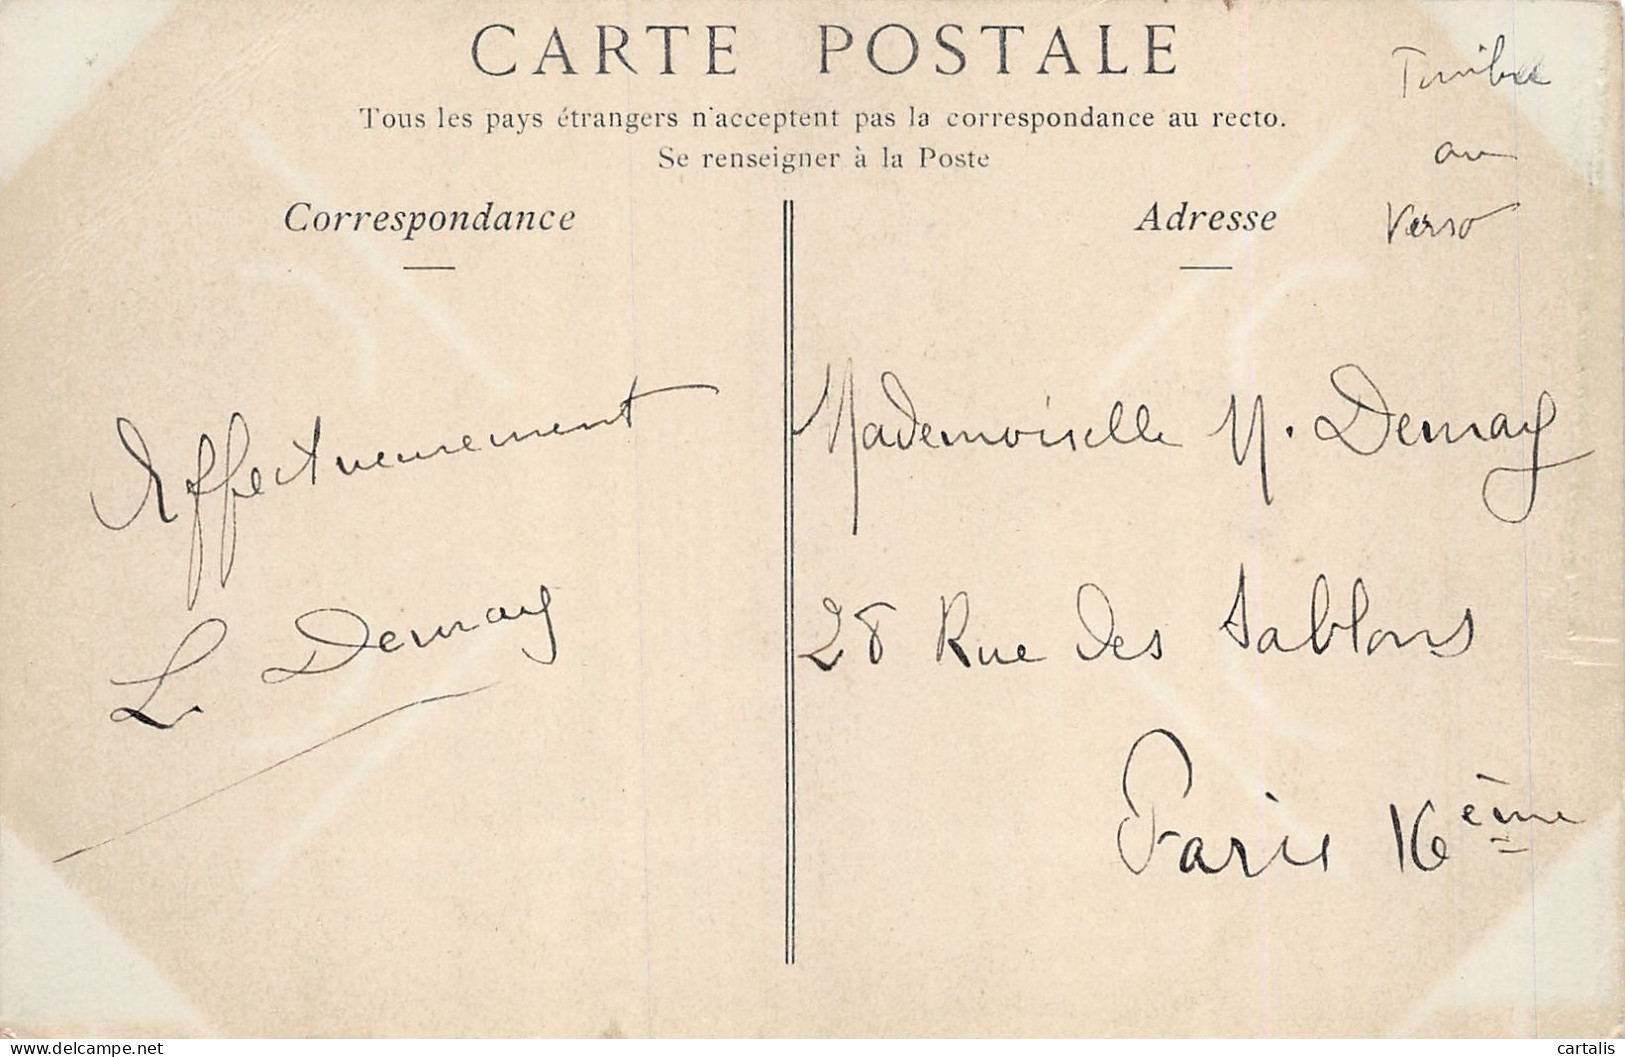 CARTE POSTALE
Tous les pays étrangers n'acceptent pas la correspondance au recto.
Se renseigner à la Poste
Timbre
au
Verso
Correspondance
Adresse
Affectueusement
L. Demay
Mademoiselle M. Demay
28 Rue des Sablons
Paris 16ème
www.delcampe.net
cartalis